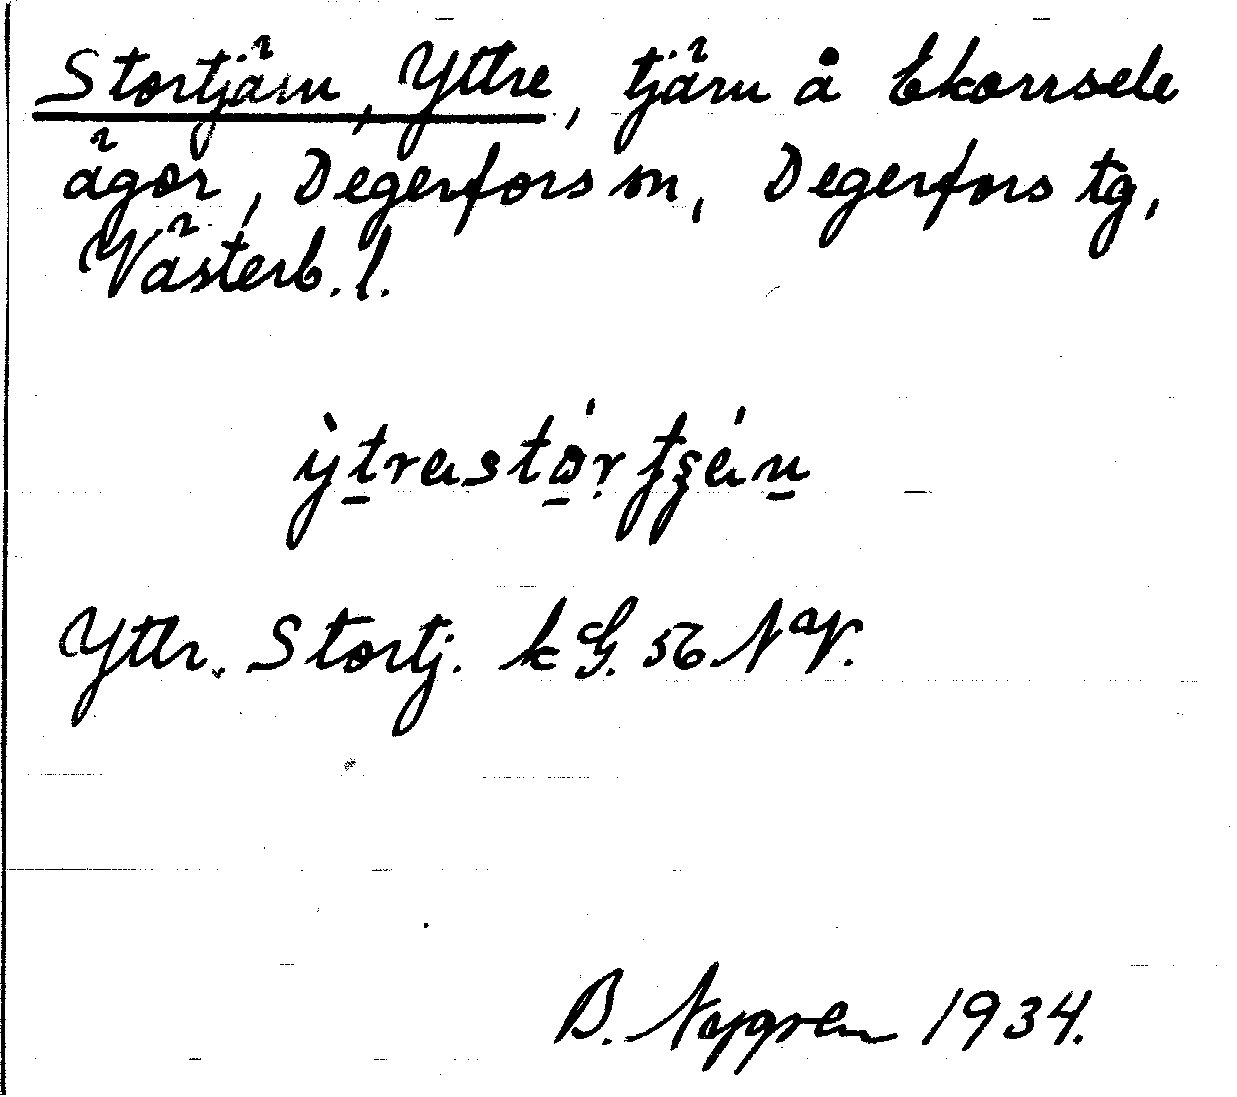 Stortjärn, Yttre, tjärn å Ekorrsele
ägor, Degerfors sn, Degerfors tg,
Västerb. l.
ỳtrastó̱rtʂán
Yttr. Stortj. kG. 56 NV.
B. Nygren 1934.